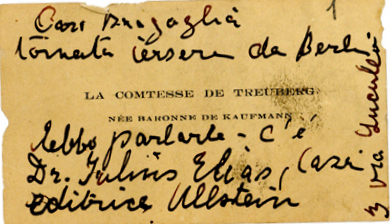 Caro Bragaglia
1
tornata iersera da Berli
LA COMTESSE DE TREUBERG
NÉE BARONNE DE KAUFMANN
debbo parlarle - c'é
Dr. Julius Elias, Casa
editrice Ullstein
3 via